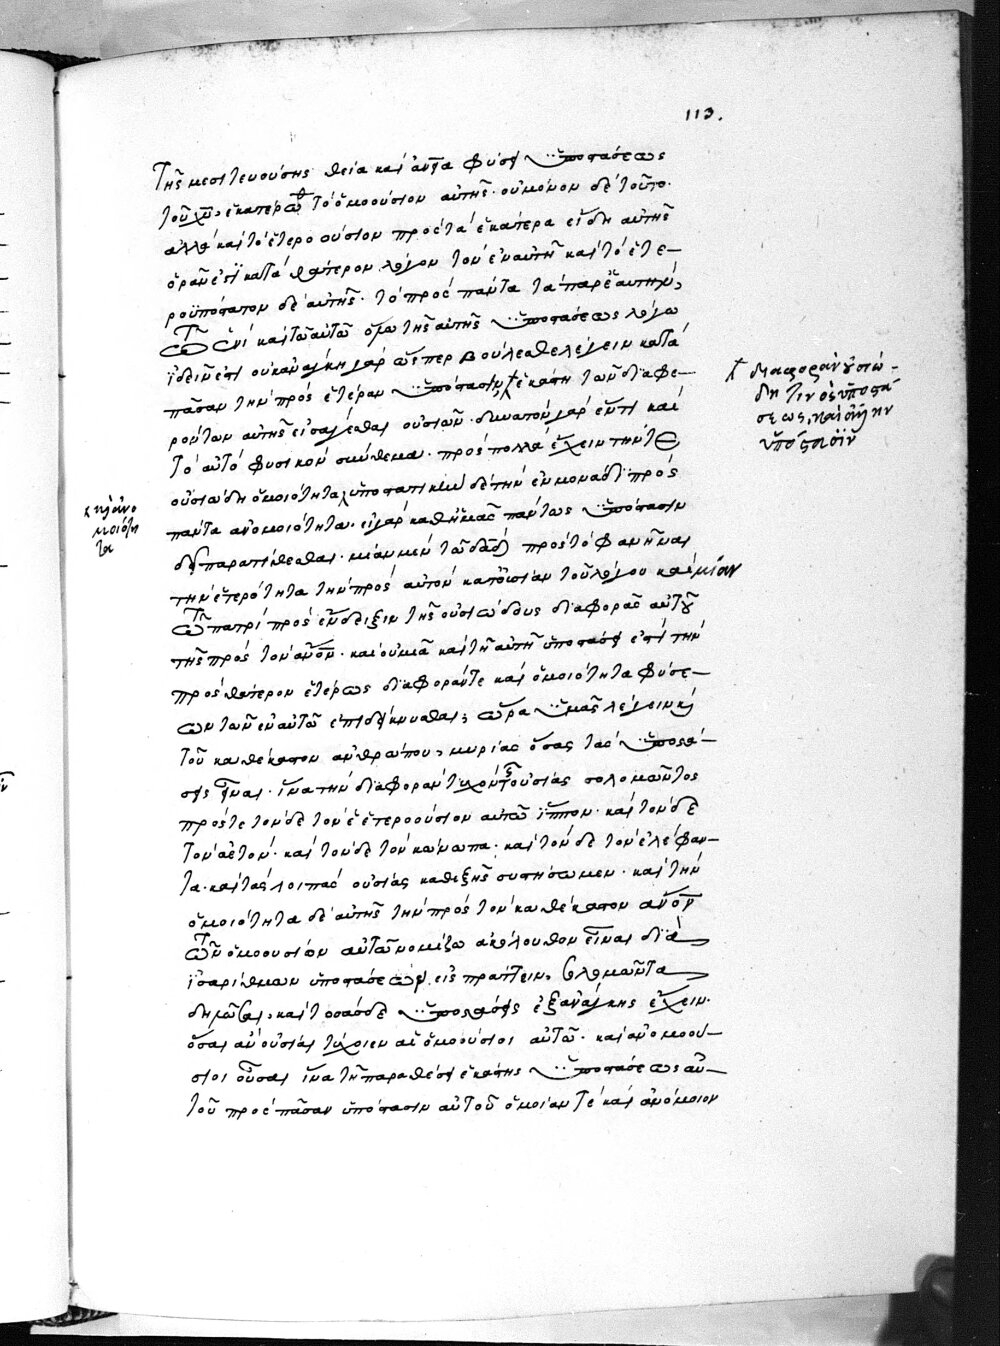 113.
τῆς μεσιτευούσης θεία καὶ ἀν̅ί̅α φύσει ὑποστάσεως
τοῦ χ̅υ̅, ἑκατέρω τὸ ὁμοούσιον αὐτῆς· οὐ μόνον δὲ τοῦτο·
ἀλλὰ καὶ τὸ ἑτεροούσιον πρὸς τὰ ἑκάτερα εἴδη αὐτῆς
ὁρᾶν ἐπὶ κατὰ θάτερον λόγον τὸν ἐν αὐτῆ καὶ τὸ ἑτε-
ροϋπόστατον δὲ αὐτῆς· τὸ πρὸς πάντα τὰ παρ' ἑαυτὴν,
τῶ ἑνὶ καὶ τῶ αὐτῶ ὅρω τῆς αὐτῆς ὑποστάσεως λόγω
ἰδεῖν ἐστι οὐκ ἀνάγκη γὰρ ὥσπερ βούλεσθε λέγειν κατὰ
πᾶσαν τὴν πρὸς ἑτέραν ὑπόστασιν ἑκάστη τῶν διαφε-
ρόντων αὐτῆς εἰσαγέσθαι οὐσιῶν· δυνατὸν γάρ ἐστι καὶ
τὸ αὐτὸ φυσικὸν σύνθεμα· πρὸς πολλὰ ἔχειν τήν τε
οὐσιώδη ὁμοιότητα ὑποστατικὴν δὲ τὴν ἐν μονάδι πρὸς
πάντα ἀνομοιότητα· εἰ γὰρ καθ' ἡμᾶς πάντως ὑπόστασιν
δεῖ παρατίθεσθαι· μίαν μὲν τῶ δα̅δ̅ πρὸς τὸ φανῆναι
τὴν ἑτερότητα τὴν πρὸς αὐτὸν κατ' οὐσίαν τοῦ λόγου καὶ μίαν
τῶ πατρὶ πρὸς ἔνδειξιν τῆς οὐσιώδους διαφορᾶς αὐτοῦ
τῆς πρὸς τὸν ἄν̅ο̅ν· καὶ οὐ μιᾶ καὶ τῆ αὐτῆ ὑποστάσει ἐστὶ τὴν
πρὸς θάτερον ἑτέρως διαφοράν τε καὶ ὁμοιότητα φύσε-
ων τῶν ἐν αὐτῶ ἐπιδείκνυσθαι, ὥρα ὑμᾶς λέγειν κ(αὶ)
τοῦ καθ' ἕκαστον ἀνθρώπου, μυρίας ὅσας τὰς ὑποστά-
σεις εἶναι· ἵνα τὴν διαφορὰν τυχὸν τῆς οὐσίας σολομῶντος
πρός τε τόνδε τὸν ἑτεροούσιον αὐτῶ ἵππον· καὶ τόνδε
τὸν ἀετόν· καὶ τόνδε τὸν κώνωπα· καὶ τόνδε τὸν ἐλέφαν-
τα· καὶ τὰς λοιπὰς οὐσίας καθεξῆς συστήσωμεν· καὶ τὴν
ὁμοιότητα δὲ αὐτῆς τὴν πρὸς τὸν καθ' ἕκαστον ἄν̅ο̅ν
τῶν ὁμοουσίων αὐτῶ νομίζω ἀκόλουθον εἶναι διὰ
ἰσαρίθμων ὑποστάσεων εἰσπράττειν, σολομῶντα
δηλῶσαι, καὶ τοσάσδε ὑποστάσεις ἐξ ἀνάγκης ἔχειν·
ὅσαι ἂν οὐσίαι τύχοιεν αἱ ὁμοούσιοι αὐτῶ· καὶ ἀνομοού-
σιοι οὖσαι ἵνα τῆ παραθέσει ἑκάστης ὑποστάσεως αὐ-
τοῦ πρὸς πᾶσαν ὑπόστασιν αὐτοῦ ὅμοιάν τε καὶ ἀνόμοιον
διαφορὰν οὐσιώ-
δη τινος ὑποστά-
σεως, καὶ ἄλλην
ὑπόστασιν
καὶ ἀνο
μοιότη
τα